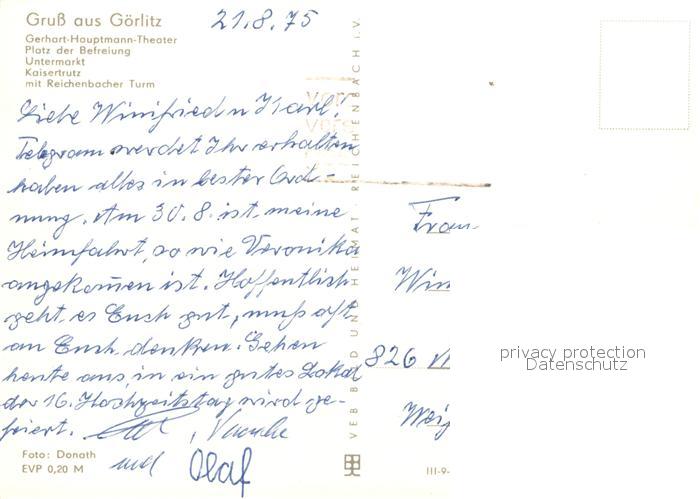 Gruß aus Görlitz
21.8.75
Gerhart-Hauptmann-Theater
Platz der Befreiung
Untermarkt
Kaisertrutz
mit Reichenbacher Turm
Liebe Winifried u Karl!
Telegram werdet Ihr erhalten
haben alles in bester Ord-
nung. Am 30.8. ist meine
Heimfahrt, so wie Veronika
angekommen ist. Hoffentlich
geht es Euch gut, muß oft
an Euch denken. Gehen
heute aus, in ein gutes Lokal
der 16. Hochzeitstag wird ge-
feiert.
und Olaf
Foto: Donath
EVP 0,20 M
VEB BILD UND HEIMAT REICHENBACH i.V.
Frau
Win
826
Wei
III-9-
privacy protection
Datenschutz